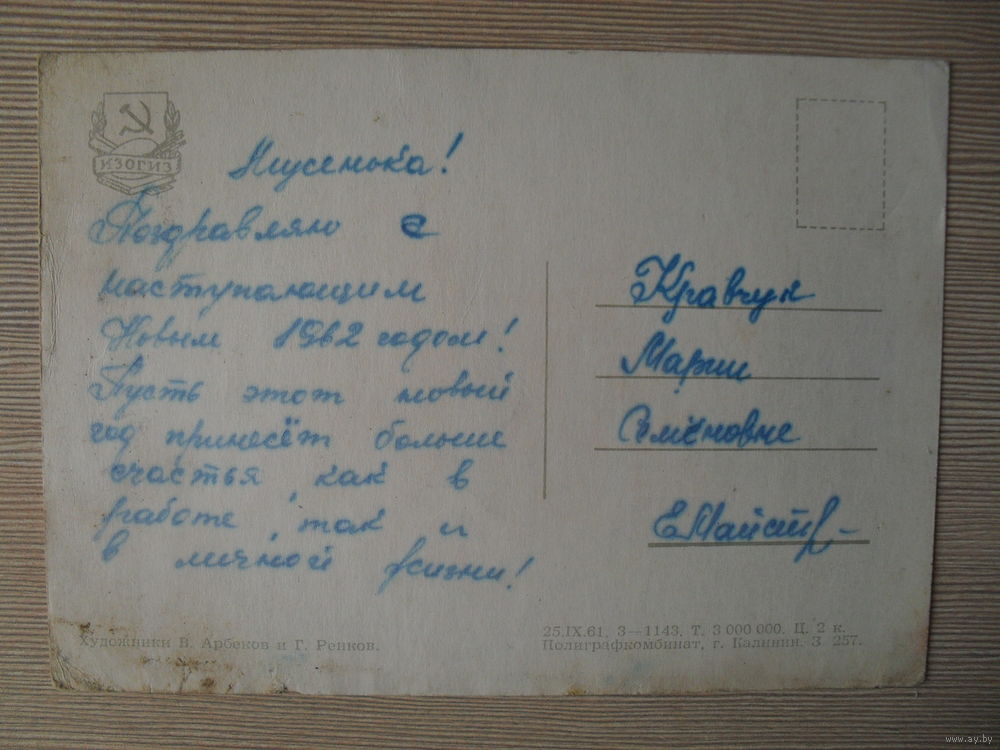 ИЗОГИЗ
Мусенька!
Поздравляю с
наступающим
Новым 1962 годом!
Пусть этот новый
год принесёт больше
счастья, как в
работе, так и
в личной жизни!
Кравчук
Марии
Семёновне
Е Майстр
Художники В. Арбеков и Г. Репков.
25.IX.61. З—1143. Т. 3 000 000. Ц. 2 к.
Полиграфкомбинат, г. Калинин. З. 257.
www.ay.by